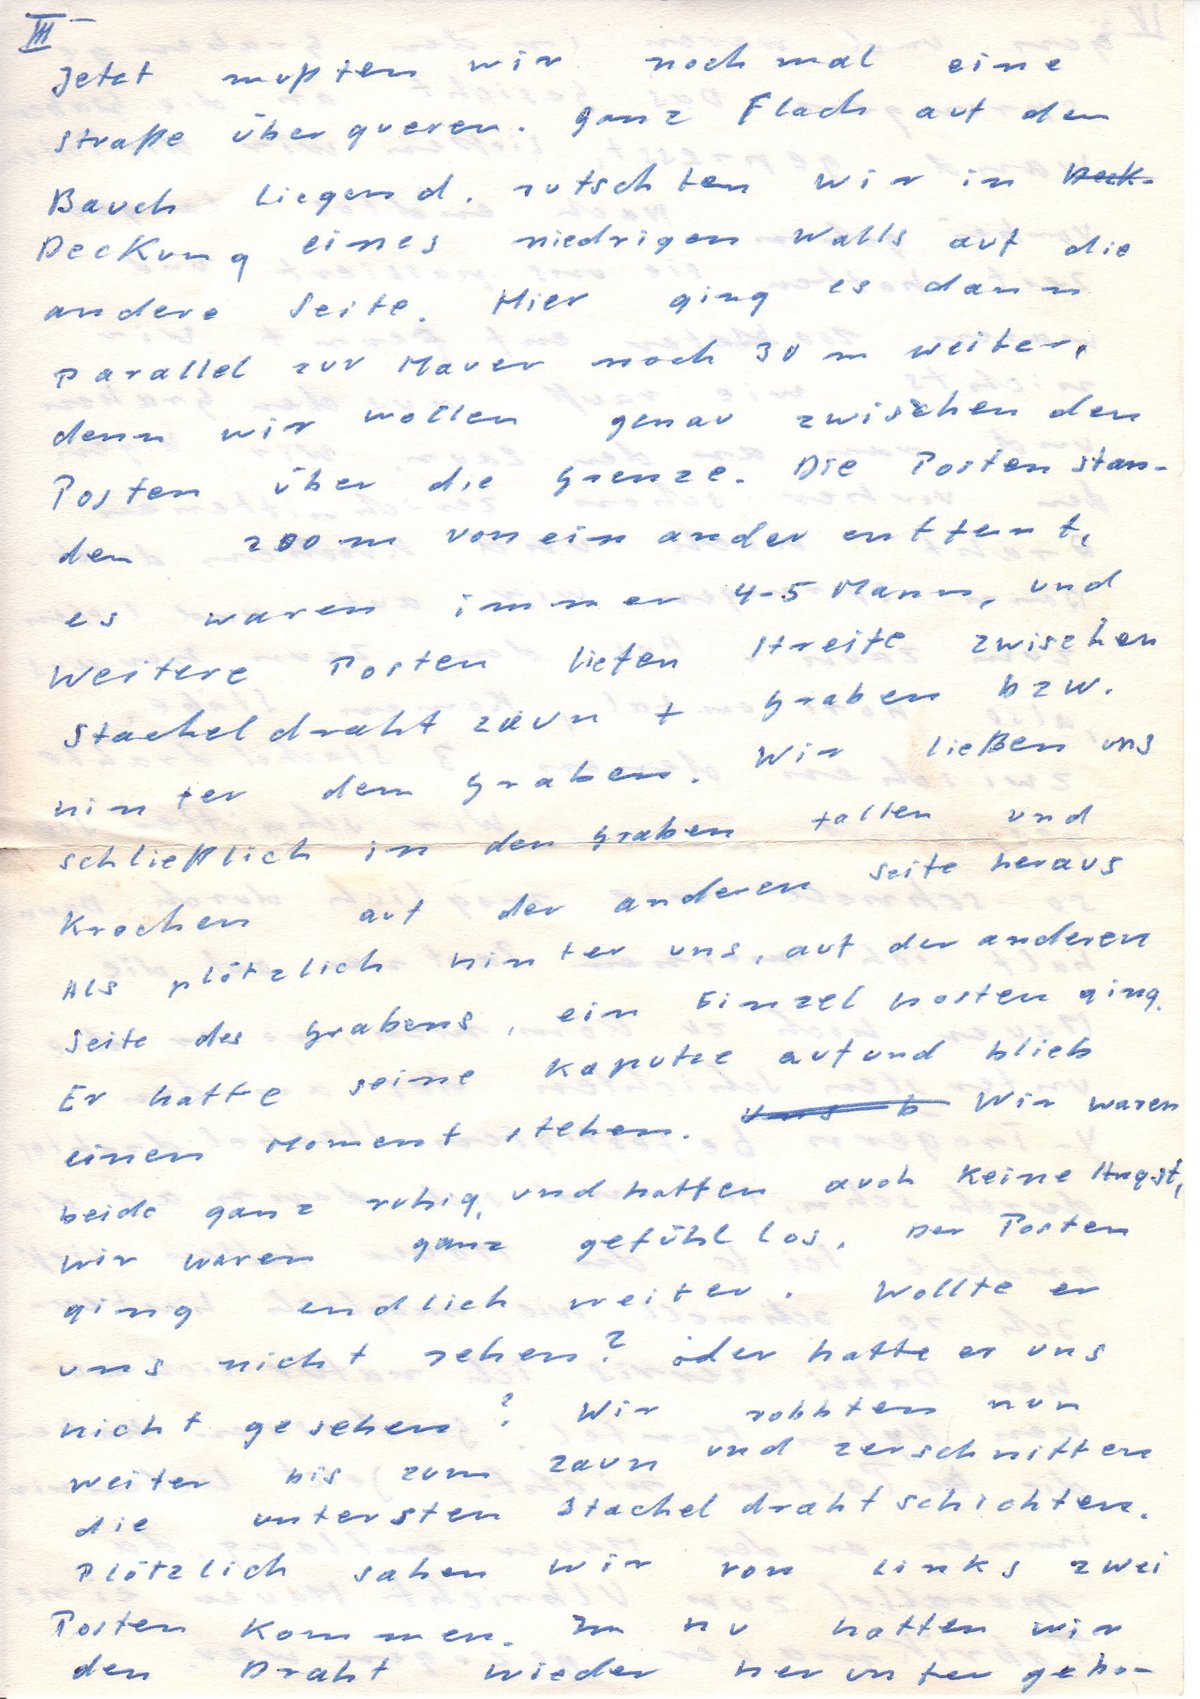 III
Jetzt mußten wir noch mal eine
Straße überqueren. ganz Flach auf den
Bauch liegend. rutschten wir in Deck-
Deckung eines niedrigen Walls auf die
andere Seite. Hier ging es dann
Parallel zur Mauer noch 30 m weiter,
denn wir wollen genau zwischen den
Posten über die Grenze. Die Posten stan-
den 200 m von ein ander entfernt,
es waren immer 4-5 Mann, und
Weitere Posten liefen Streife zwischen
Stacheldrahtzaun + Graben bzw.
hinter dem Graben. Wir ließen uns
schließlich in den Graben fallen und
Krochen auf der anderen Seite heraus
Als plötzlich hinter uns, auf der anderen
Seite des Grabens, ein Einzelposten ging.
Er hatte seine Kaputze auf und blieb
einen Moment stehen. Uns b Wir waren
beide ganz ruhig, und hatten auch keine Angst,
wir waren ganz gefühllos. Der Posten
ging endlich weiter. Wollte er
uns nicht sehen? oder hatte er uns
nicht gesehen? Wir robbten nun
weiter bis zum Zaun und zerschnitten
die untersten Stacheldrahtschichten.
Plötzlich sahen wir von links zwei
Posten Kommen. Im nu hatten wir
den Draht wieder herunter gebo-